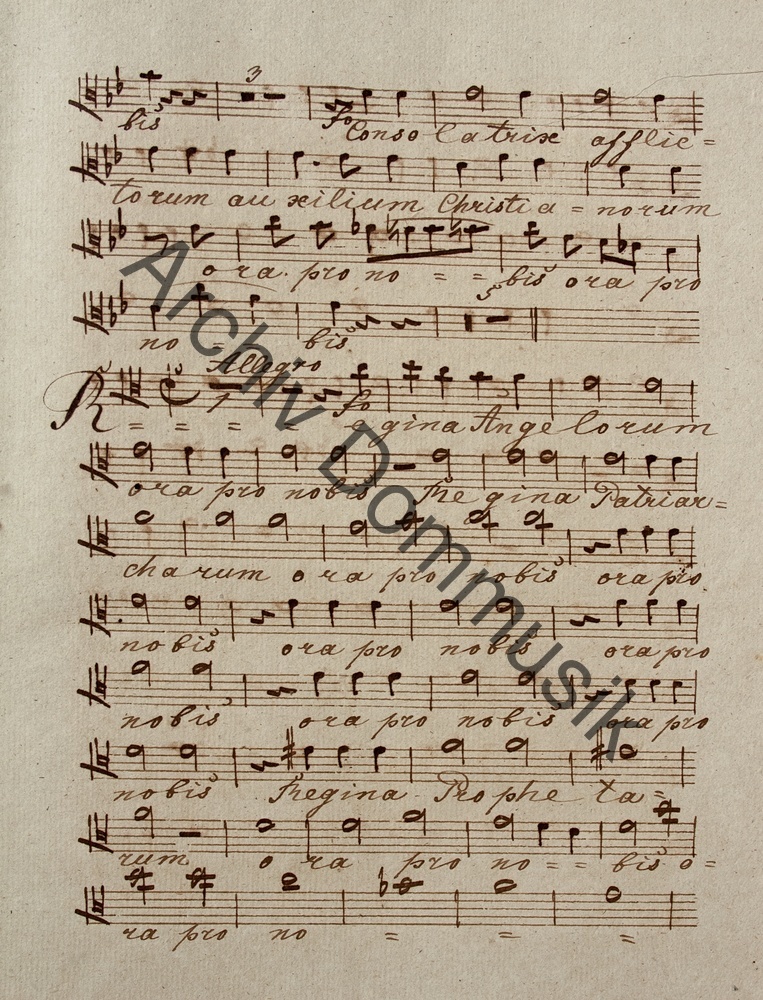 3
bis fo Consolatrix afflic=
torum auxilium Christia=norum
ora pro no = = bis ora pro
5
no = bis
Allegro
1
R = = = = fo egina Angelorum
ora pro nobis Regina Patriar=
charum ora pro nobis ora pro
nobis ora pro nobis ora pro
nobis ora pro nobis ora pro
nobis Regina Propheta=
rum ora pro no = = bis o=
ra pro no = = =
Archiv Dommusik